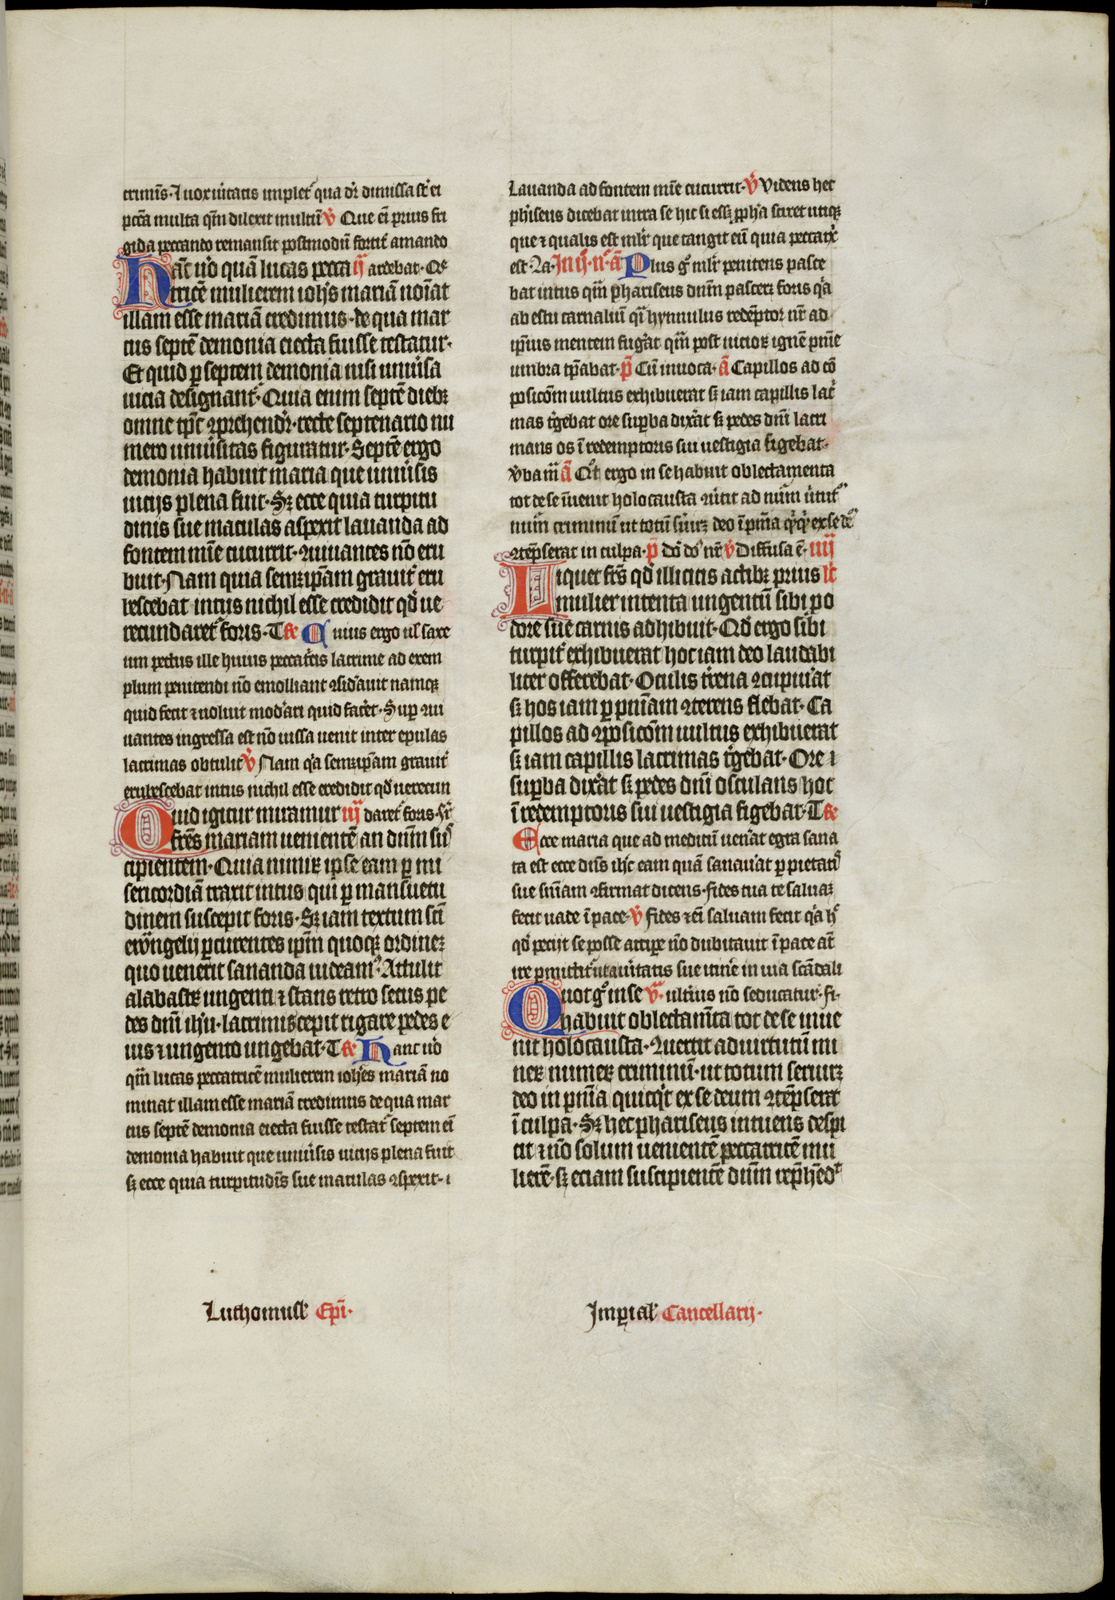 criminis · Ꞇ vox ũitatis implet᷑ qua dr̃ dimissa sт̃ ei
pctã multa qm̃ dilexit multũ ℣ Que eĩ prius fri
gida peccando remansit postmodũ fortit᷑ amando
Hãc ũo quã lucas pecca ij ardebat ·
tricẽ mulierem ioh̃s mariã noĩat
illam esse mariã credimus · de qua mar
cus septẽ demonia eiecta fuisse testatur ·
Et quid p septem demonia nisi uniũsa
uicia designant᷑ · Quia enim septẽ diebꝫ
omne tp̃c ꝯprehendr̃ · recte septenario nu
mero uniũsitas figuratur · Septẽ ergo
demonia habuit maria que uniũsis
uicijs plena fuit · Sꝫ ecce quia turpitu
dinis sue maculas aspexit lauanda ad
fontem mĩe cucurrit · ꝯuiuantes nõ eru
buit · Nam quia semꝫip̃am grauit᷑ eru
bescebat intus nichil esse credidit qd̃ ue
recundaret᷑ foris · T᷑ Cuius ergo ul̃ saxe
um pectus ille huius peccat᷑cis lacrime ad exem
plum penitendi nõ emolliant ꝯsid̃auit namqꝫ
quid fecit ⁊ noluit mod̃ari quid facẽt · Sup ꝯui
uantes ingressa est nõ iussa uenit inter epulas
lacrimas obtulit ℣ Nam qͣ semꝫip̃am grauit᷑
erubescebat intus nichil esse credidit qd̃ uerecun
Quid igitur miramur iij daret᷑ foris ·
fr̃es mariam uenientẽ an dñm sus
cipientem · Quia nimiꝝ ipse eam p mi
sericordiã traxit intus qui p mansuetu
dinem suscepit foris · Sꝫ iam textum sc̃i
ewangelij pcurentes ip̃m quoqꝫ ordinez
quo uenerit sananda uideam⁹ · Attulit
alabastꝝ ungenti ⁊ stans retro secus pe
des dñi ih̃u · lacrimis cepit rigare pedes e
ius ⁊ ungento ungebat · T᷑ Hanc ũo
qm̃ lucas peccatricẽ mulierem ioh̃es mariã no
minat illam esse mariã credimus de qua mar
cus septẽ demonia eiecta fuisse testat᷑ septem eĩ
demonia habuit que uniũsis uicijs plena fuit
sꝫ ecce quia turpitudĩs sue maculas ꝯspexit · ⁊
Lauanda ad fontem mĩe cucurrit · ℣ Videns hec
ph̃iseus dicebat intra se hic si essꝫ pph̃a sciret utiqꝫ
que ⁊ qualis est ml̃r que tangit eũ quia peccat᷑x
est · In iij · n̊ · ã Plus g̊ ml̃r penitens pasce
bat intus qm̃ phariseus dnũm pasceꝫ foris qͣ
ab estu carnaliũ qͥ hynnulus redẽptor nr̃ ad
ip̃ius mentem fug̃at qm̃ post uicioꝝ ignẽ pnĩe
umbra tp̃abat · p̃ Cũ inuoca · ã Capillos ad cõ
posicõm uultus exhibuerat sꝫ iam capillis lac᷑
mas t᷑gebat ore supba dix̃at sꝫ pedes dñi lacri
mans os ĩ redemptoris sui uestigia figebat ·
℣ba m̃ ã Qͦt ergo in se habuit oblectamenta
tot de se ĩuenit holocausta ꝯũtit ad num̃ ũtut᷑
num̃ criminum ut totũ sũiꝫ deo ĩ pnĩa qͥqͥ ex se dẽ
ꝯtẽpserat in culpa · p̃ dõ dõ nr̃ ℣ Diffusa ẽ · iiij
Liquet fr̃s qd̃ illicitis actibꝫ prius lc̃
mulier intenta ungentũ sibi p o
dore sue carnis adhibuit · Qd̃ ergo sibi
turpit᷑ exhibuerat hoc iam deo laudabi
liter offerebat · Oculis t᷑rena ꝯcupiũat
sꝫ hos iam p pnĩam ꝯterens flebat · Ca
pillos ad ꝯposicõm uultus exhibuerat
sꝫ iam capillis lacrimas t᷑gebat · Ore ⁊
supba dix̃at sꝫ pedes dñi osculans hoc
ĩ redemptoris sui uestigia figebat · T᷑
Ecce maria que ad medicũ uen̄at egra sana
ta est ecce dñs ih̃c eam quã sanaũat p pietat᷑
sue sn̄iam ꝯfirmat dicens · fides tua te saluaꝫ
fecit uade ĩ pace · ℣ fides eteĩ saluam fecit qͣ hͨ
qd̃ peciit se posse accipe nõ dubitauit ĩ pace aũt
ire pmittit᷑ ut a ũitatis sue itinẽ in uia scãdali
Quot g̊ in se v᷑ · ult᷑ius nõ seducatur · fi ·
habuit oblectam̃ta tot de se inue
nit holocausta · ꝯuertit ad uirtutũ nu
meꝝ numeꝝ criminũ · ut totum seruiꝫ
deo in pnĩa quicqͥt ex se deum ꝯtẽpserat
ĩ culpa · Sꝫ hec phariseus intuens despi
cit ⁊ nõ solum uenientẽ peccatricẽ mu
lierẽ · sꝫ eciam suscipientẽ dñm rep̃hẽdͭ
Luthomusl᷑ Epĩ ·
Imꝑial᷑ Cancellarij ·